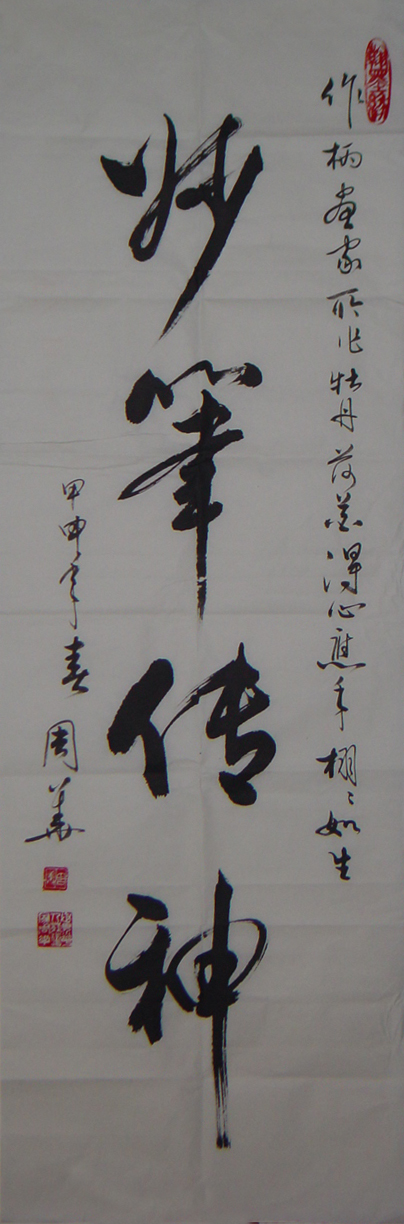 作柄画家所作牡丹荷花得心應手栩〻如生
妙筆传神
甲申年春
周華